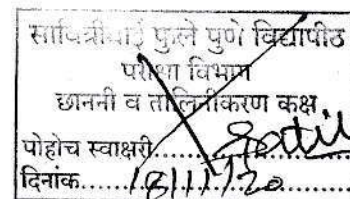 सावित्रीबाई फुले पुणे विद्यापीठ
परीक्षा विभाग
छाननी व तालिनीकरण कक्ष
पोहोच स्वाक्षरी..........
दिनांक.....18/11/20